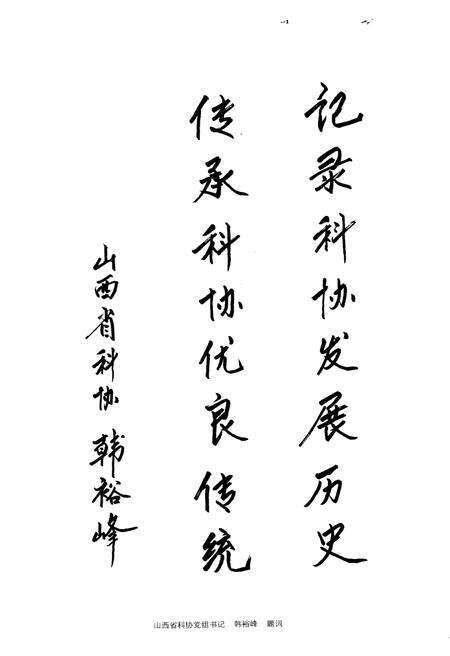 记录科协发展历史
传承科协优良传统
山西省科协 韩裕峰
山西省科协党组书记 韩裕峰 题词